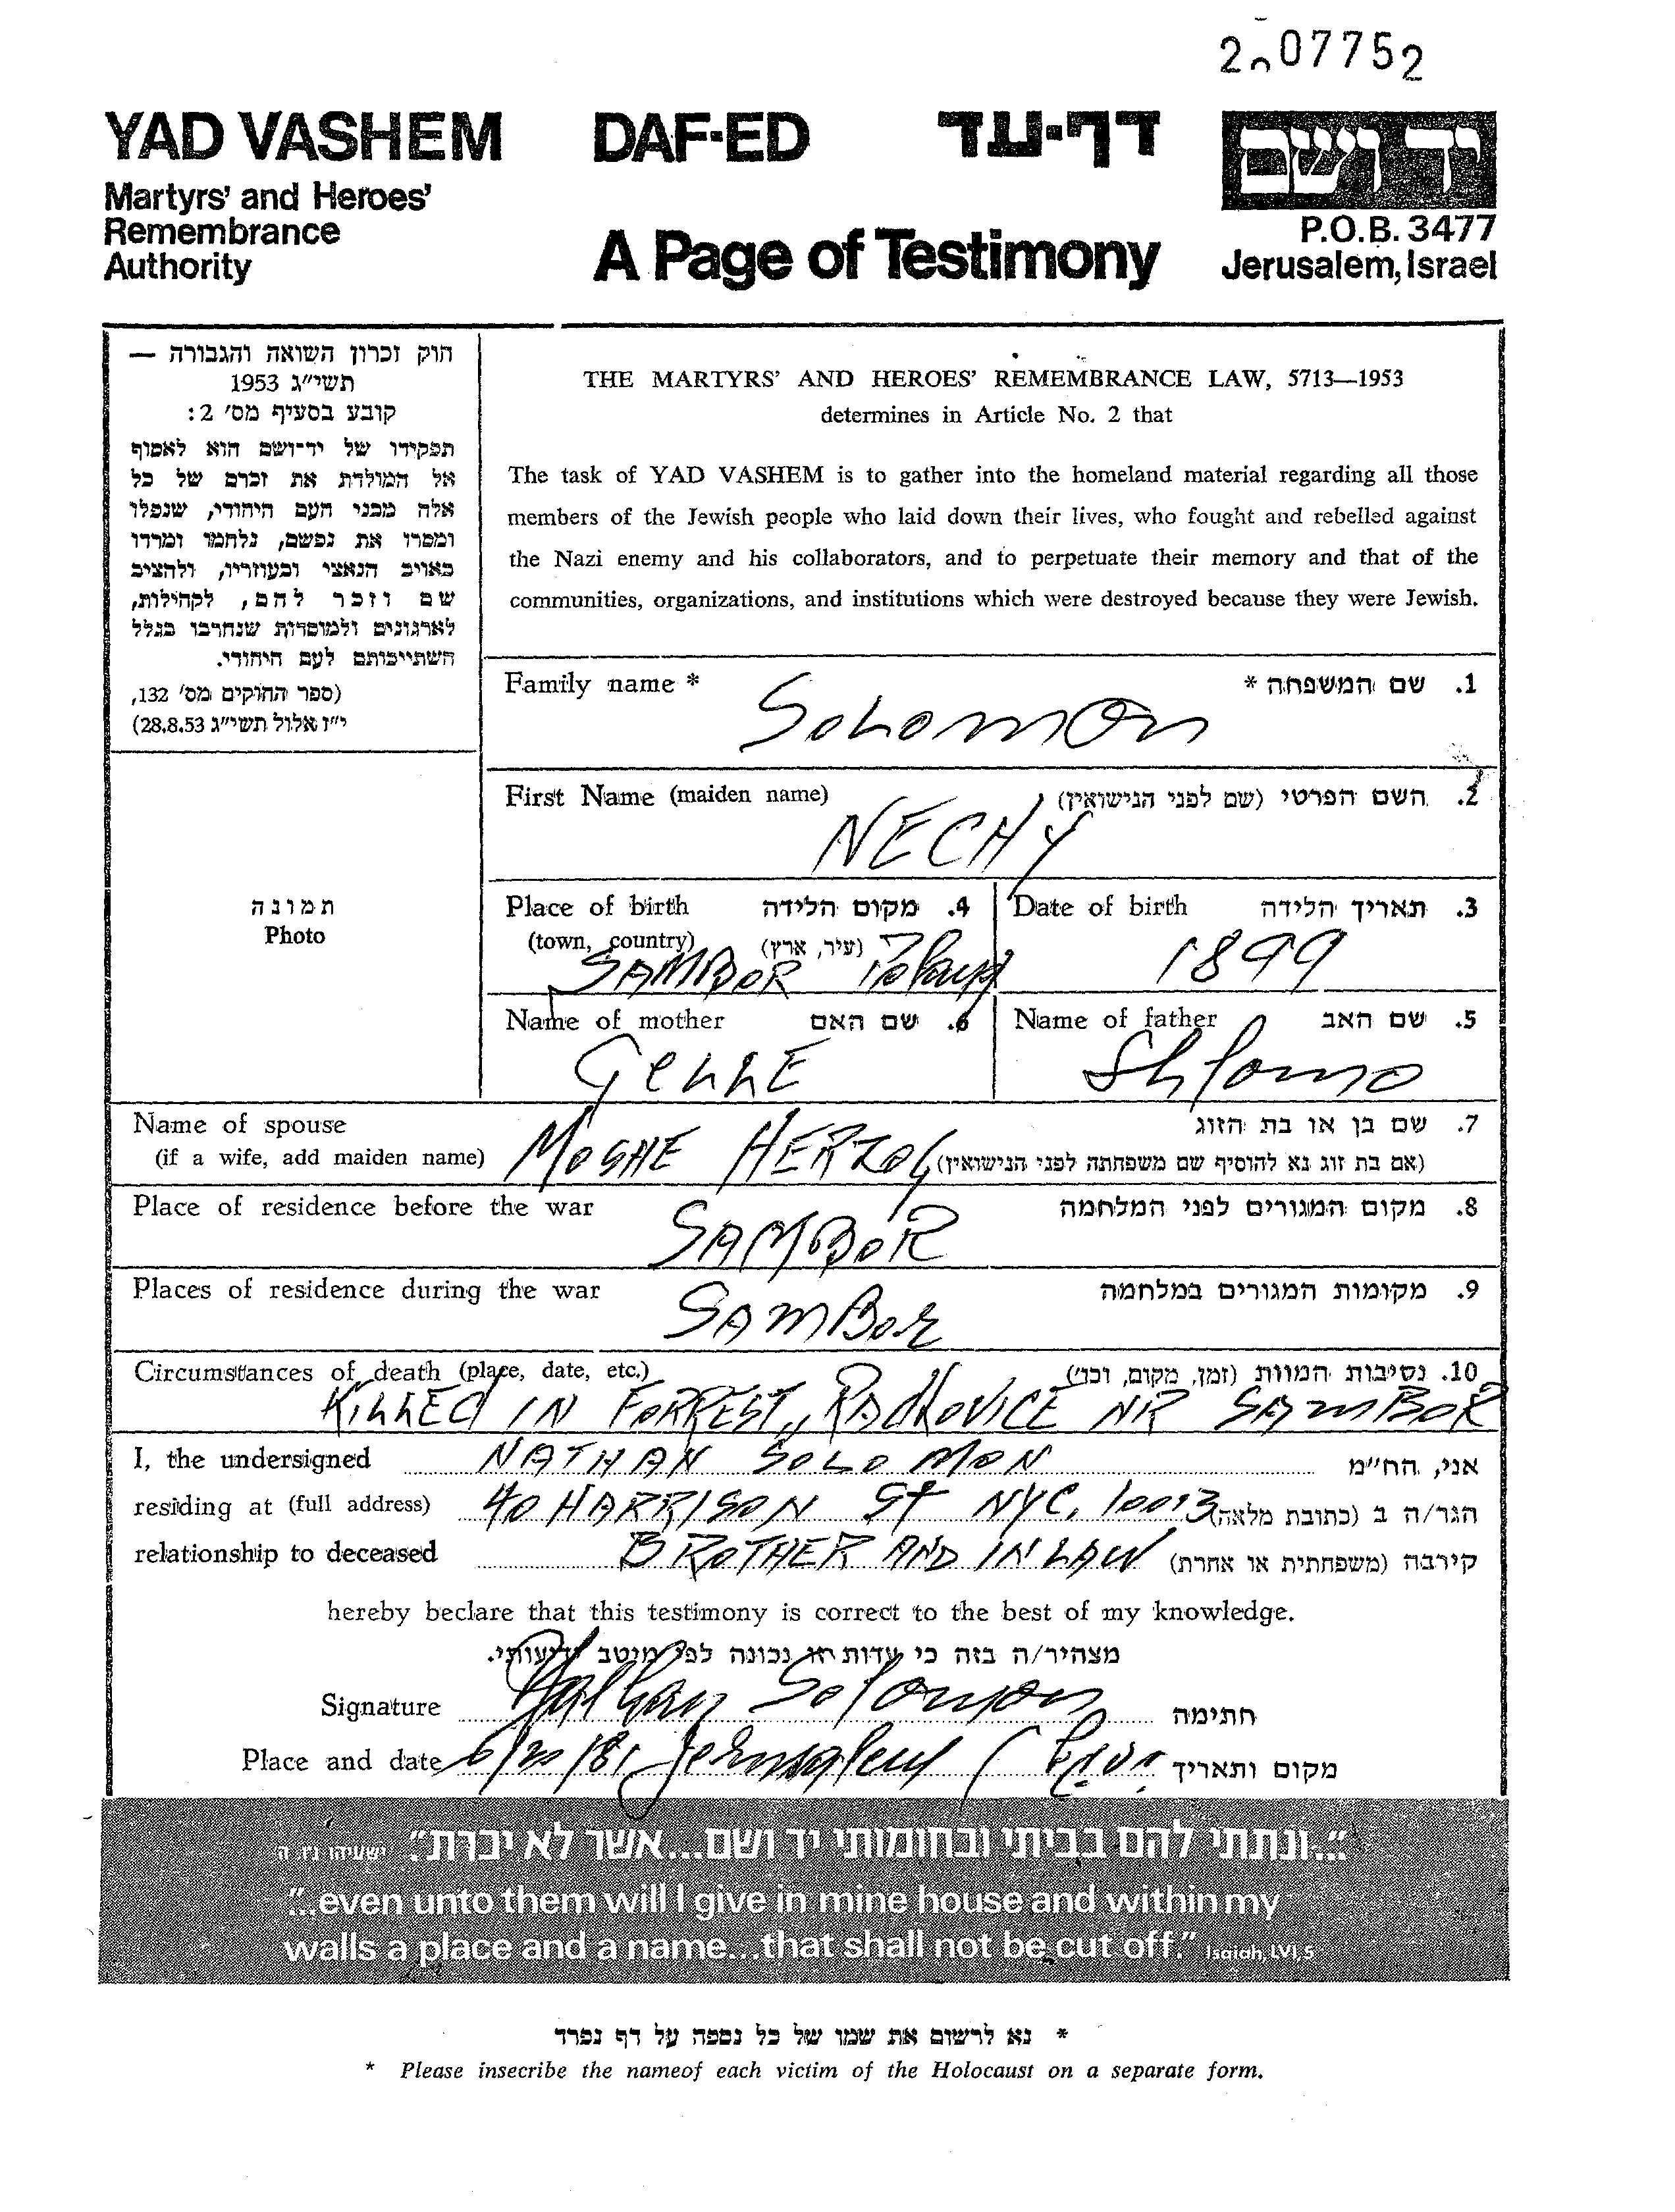 207752
YAD VASHEM DAF-ED דף-עד ידושם
Martyrs' and Heroes'
Remembrance
Authority
A Page of Testimony
P.O.B. 3477
Jerusalem, Israel
חוק זכרון השואה והגבורה —
תשי״ג 1953
קובע בסעיף מס׳ 2:
תפקידו של יד־ושם הוא לאסוף
אל המולדת את זכרם של כל
אלה מבני העם היהודי, שנפלו
ומסרו את נפשם, נלחמו ומרדו
באויב הנאצי ובעוזריו, ולהציב
שם וזכר להם, לקהילות,
לארגונים ולמוסדות שנחרבו בגלל
השתייכותם לעם היהודי.
(ספר החוקים מס׳ 132,
י״ז אלול תשי״ג 28.8.53)
THE MARTYRS' AND HEROES' REMEMBRANCE LAW, 5713—1953
determines in Article No. 2 that
The task of YAD VASHEM is to gather into the homeland material regarding all those
members of the Jewish people who laid down their lives, who fought and rebelled against
the Nazi enemy and his collaborators, and to perpetuate their memory and that of the
communities, organizations, and institutions which were destroyed because they were Jewish.
Family name * 1. שם המשפחה *
Solomon
First Name (maiden name) 2. השם הפרטי (שם לפני הנישואין)
NECHY
תמונה
Photo
Place of birth 4. מקום הלידה
(town, country) (עיר, ארץ)
SAMBOR Poland
Date of birth 3. תאריך הלידה
1899
Name of mother 6. שם האם
GELLE
Name of father 5. שם האב
Shlomo
Name of spouse 7. שם בן או בת הזוג
(if a wife, add maiden name) MOSHE HERZOG (אם בת זוג נא להוסיף שם משפחתה לפני הנישואין)
Place of residence before the war 8. מקום המגורים לפני המלחמה
SAMBOR
Places of residence during the war 9. מקומות המגורים במלחמה
SAMBOR
Circumstances of death (place, date, etc.) 10. נסיבות המוות (זמן, מקום, וכו׳)
KILLED IN FORREST,, RADLOVICE NR SAMBOR
I, the undersigned NATHAN SOLOMON אני, החי״מ
residing at (full address) 40 HARRISON St NYC, 10013 הגר/ה ב (כתובת מלאה)
relationship to deceased BROTHER AND IN LAW קירבה (משפחתית או אחרת)
hereby beclare that this testimony is correct to the best of my knowledge.
מצהיר/ה בזה כי עדות זו נכונה לפי מיטב ידיעותי.
Signature Nathan Solomon חתימה
Place and date 6/20/81 Jerusalem מקום ותאריך
"...ונתתי להם בביתי ובחומותי יד ושם...אשר לא יכרת." ישעיהו נ״ו, ה
"...even unto them will I give in mine house and within my
walls a place and a name...that shall not be cut off." Isaiah, LVI, 5
* נא לרשום את שמו של כל נספה על דף נפרד
* Please insecribe the nameof each victim of the Holocaust on a separate form.